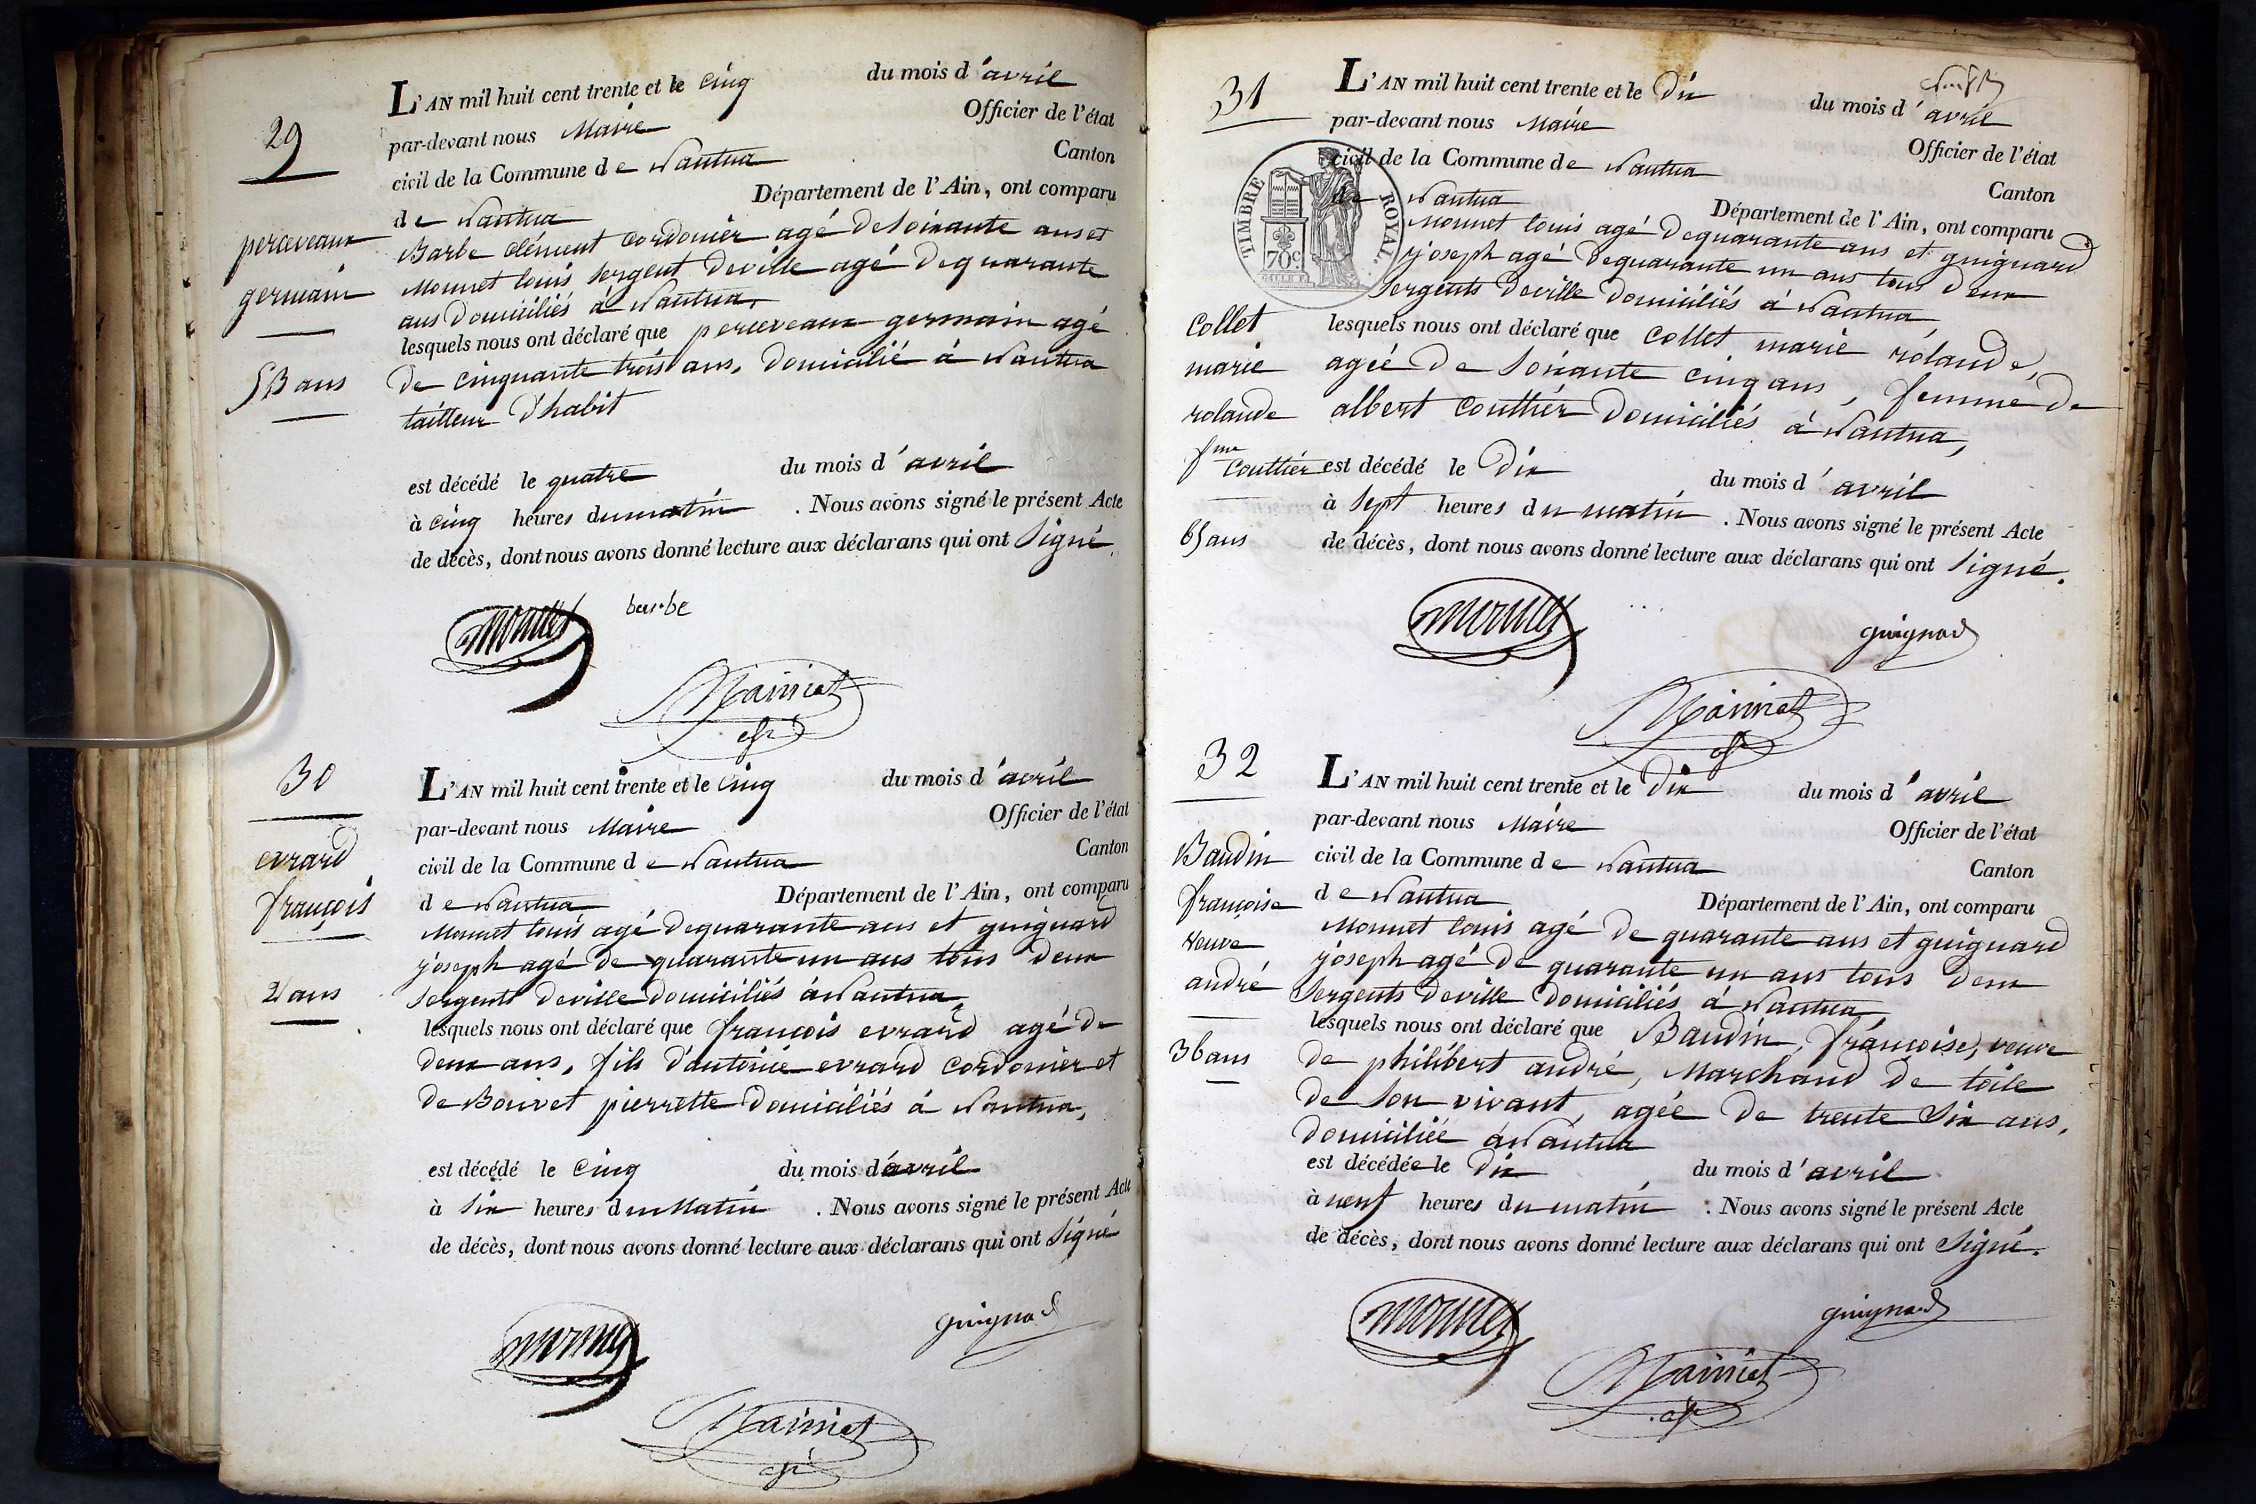 29
perceveaux
germain
53 ans
L'AN mil huit cent trente et le cinq du mois d'avril
par-devant nous Maire Officier de l'état
civil de la Commune de Nantua Canton
de Nantua Département de l'Ain, ont comparu
Barbe clément cordonier agé de soixante ans et
Monnet louis sergent deville agé de quarante
ans domiciliés à Nantua,
lesquels nous ont déclaré que perceveaux germain agé
de cinquante trois ans, domicilié à Nantua
tailleur d'habit
est décédé le quatre du mois d'avril
à cinq heures du matin . Nous avons signé le présent Acte
de décès, dont nous avons donné lecture aux déclarans qui ont signé.
Monnet barbe
30
evrard
françois
2 ans
L'AN mil huit cent trente et le cinq du mois d'avril
par-devant nous Maire Officier de l'état
civil de la Commune de Nantua Canton
de Nantua Département de l'Ain, ont comparu
Monnet louis agé de quarante ans et guignard
joseph agé de quarante un ans tous deux
sergents deville domiciliés à Nantua,
lesquels nous ont déclaré que françois evrard agé de
deux ans, fils d'antoine evrard cordonier et
de Bouvet pierrette domiciliés à Nantua,
est décédé le cinq du mois d'avril
à six heures du Matin . Nous avons signé le présent Acte
de décès, dont nous avons donné lecture aux déclarans qui ont signé
Monnet guignard
31
TIMBRE ROYAL
70 c.
Collet
marie
rolande
fme
Couttier
65 ans
L'AN mil huit cent trente et le dix du mois d'avril
par-devant nous Maire Officier de l'état
civil de la Commune de Nantua Canton
de Nantua Département de l'Ain, ont comparu
Monnet louis agé de quarante ans et guignard
joseph agé de quarante un ans tous deux
sergents deville domiciliés à Nantua
lesquels nous ont déclaré que collet marie rolande,
agée de soixante cinq ans, femme de
albert couttier domiciliés à Nantua,
est décédé le dix du mois d'avril
à sept heures du matin . Nous avons signé le présent Acte
de décès, dont nous avons donné lecture aux déclarans qui ont signé.
Monnet guignard
32
Baudin
françoise
veuve
andré
36 ans
L'AN mil huit cent trente et le dix du mois d'avril
par-devant nous Maire Officier de l'état
civil de la Commune de Nantua Canton
de Nantua Département de l'Ain, ont comparu
Monnet louis agé de quarante ans et guignard
joseph agé de quarante un ans tous deux
sergents deville domiciliés à Nantua
lesquels nous ont déclaré que Baudin, françoise, veuve
de philibert andré, Marchand de toile
de son vivant, agée de trente six ans,
domiciliée à Nantua
est décédée le dix du mois d'avril
à neuf heures du matin . Nous avons signé le présent Acte
de décès, dont nous avons donné lecture aux déclarans qui ont signé.
Monnet guignard